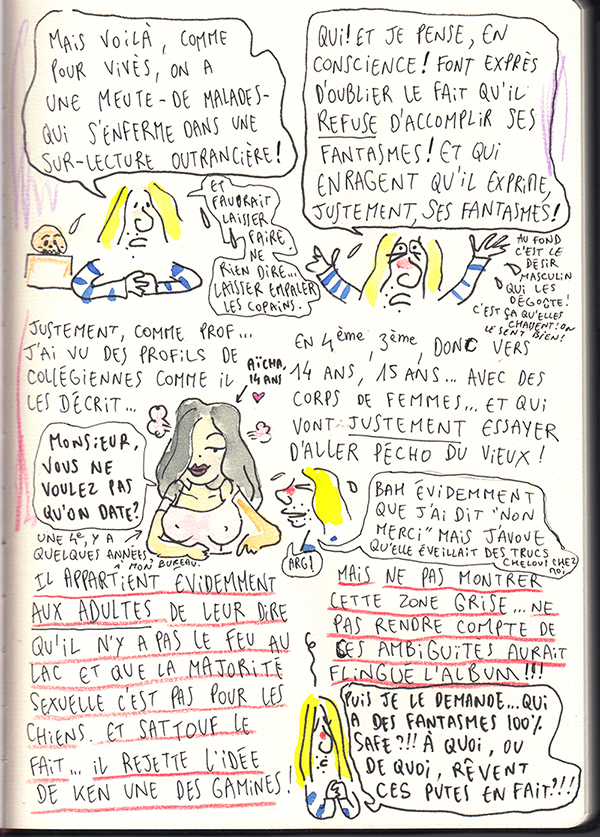 MAIS VOILÀ, COMME
POUR VIVÈS, ON A
UNE MEUTE - DE MALADES -
QUI S'ENFERME DANS UNE
SUR-LECTURE OUTRANCIÈRE!
ET
FAUDRAIT
LAISSER
FAIRE
NE
RIEN DIRE...
LAISSER EMPALER
LES COPAINS.
QUI! ET JE PENSE, EN
CONSCIENCE! FONT EXPRÈS
D'OUBLIER LE FAIT QU'IL
REFUSE D'ACCOMPLIR SES
FANTASMES! ET QUI
ENRAGENT QU'IL EXPRIME,
JUSTEMENT, SES FANTASMES!
AU FOND
C'EST LE
DÉSIR
MASCULIN
QUI LES
DÉGOÛTE!
C'EST ÇA QU'ELLES
CHASSENT! ON
LE SENT BIEN!
JUSTEMENT, COMME PROF...
J'AI VU DES PROFILS DE
COLLÉGIENNES COMME IL
LES DÉCRIT...
AÏCHA,
14 ANS
MONSIEUR,
VOUS NE
VOULEZ PAS
QU'ON DATE?
UNE 4e, Y A
QUELQUES ANNÉES,
À MON BUREAU.
EN 4ème, 3ème, DONC VERS
14 ANS, 15 ANS... AVEC DES
CORPS DE FEMMES... ET QUI
VONT JUSTEMENT ESSAYER
D'ALLER PÉCHO DU VIEUX!
BAH ÉVIDEMMENT
QUE J'AI DIT "NON
MERCI" MAIS J'AVOUE
QU'ELLE ÉVEILLAIT DES TRUCS
CHELOU CHEZ
MOI.
ARG!
IL APPARTIENT ÉVIDEMMENT
AUX ADULTES DE LEUR DIRE
QU'IL N'Y A PAS LE FEU AU
LAC ET QUE LA MAJORITÉ
SEXUELLE C'EST PAS POUR LES
CHIENS. ET SATTOUF LE
FAIT... IL REJETTE L'IDÉE
DE KEN UNE DES GAMINES!
MAIS NE PAS MONTRER
CETTE ZONE GRISE... NE
PAS RENDRE COMPTE DE
CES AMBIGUITÉS AURAIT
FLINGUÉ L'ALBUM!!!
PUIS JE LE DEMANDE... QUI
A DES FANTASMES 100%
SAFE?!!! À QUOI, OU
DE QUOI, RÊVENT
CES PUTES EN FAIT?!!!